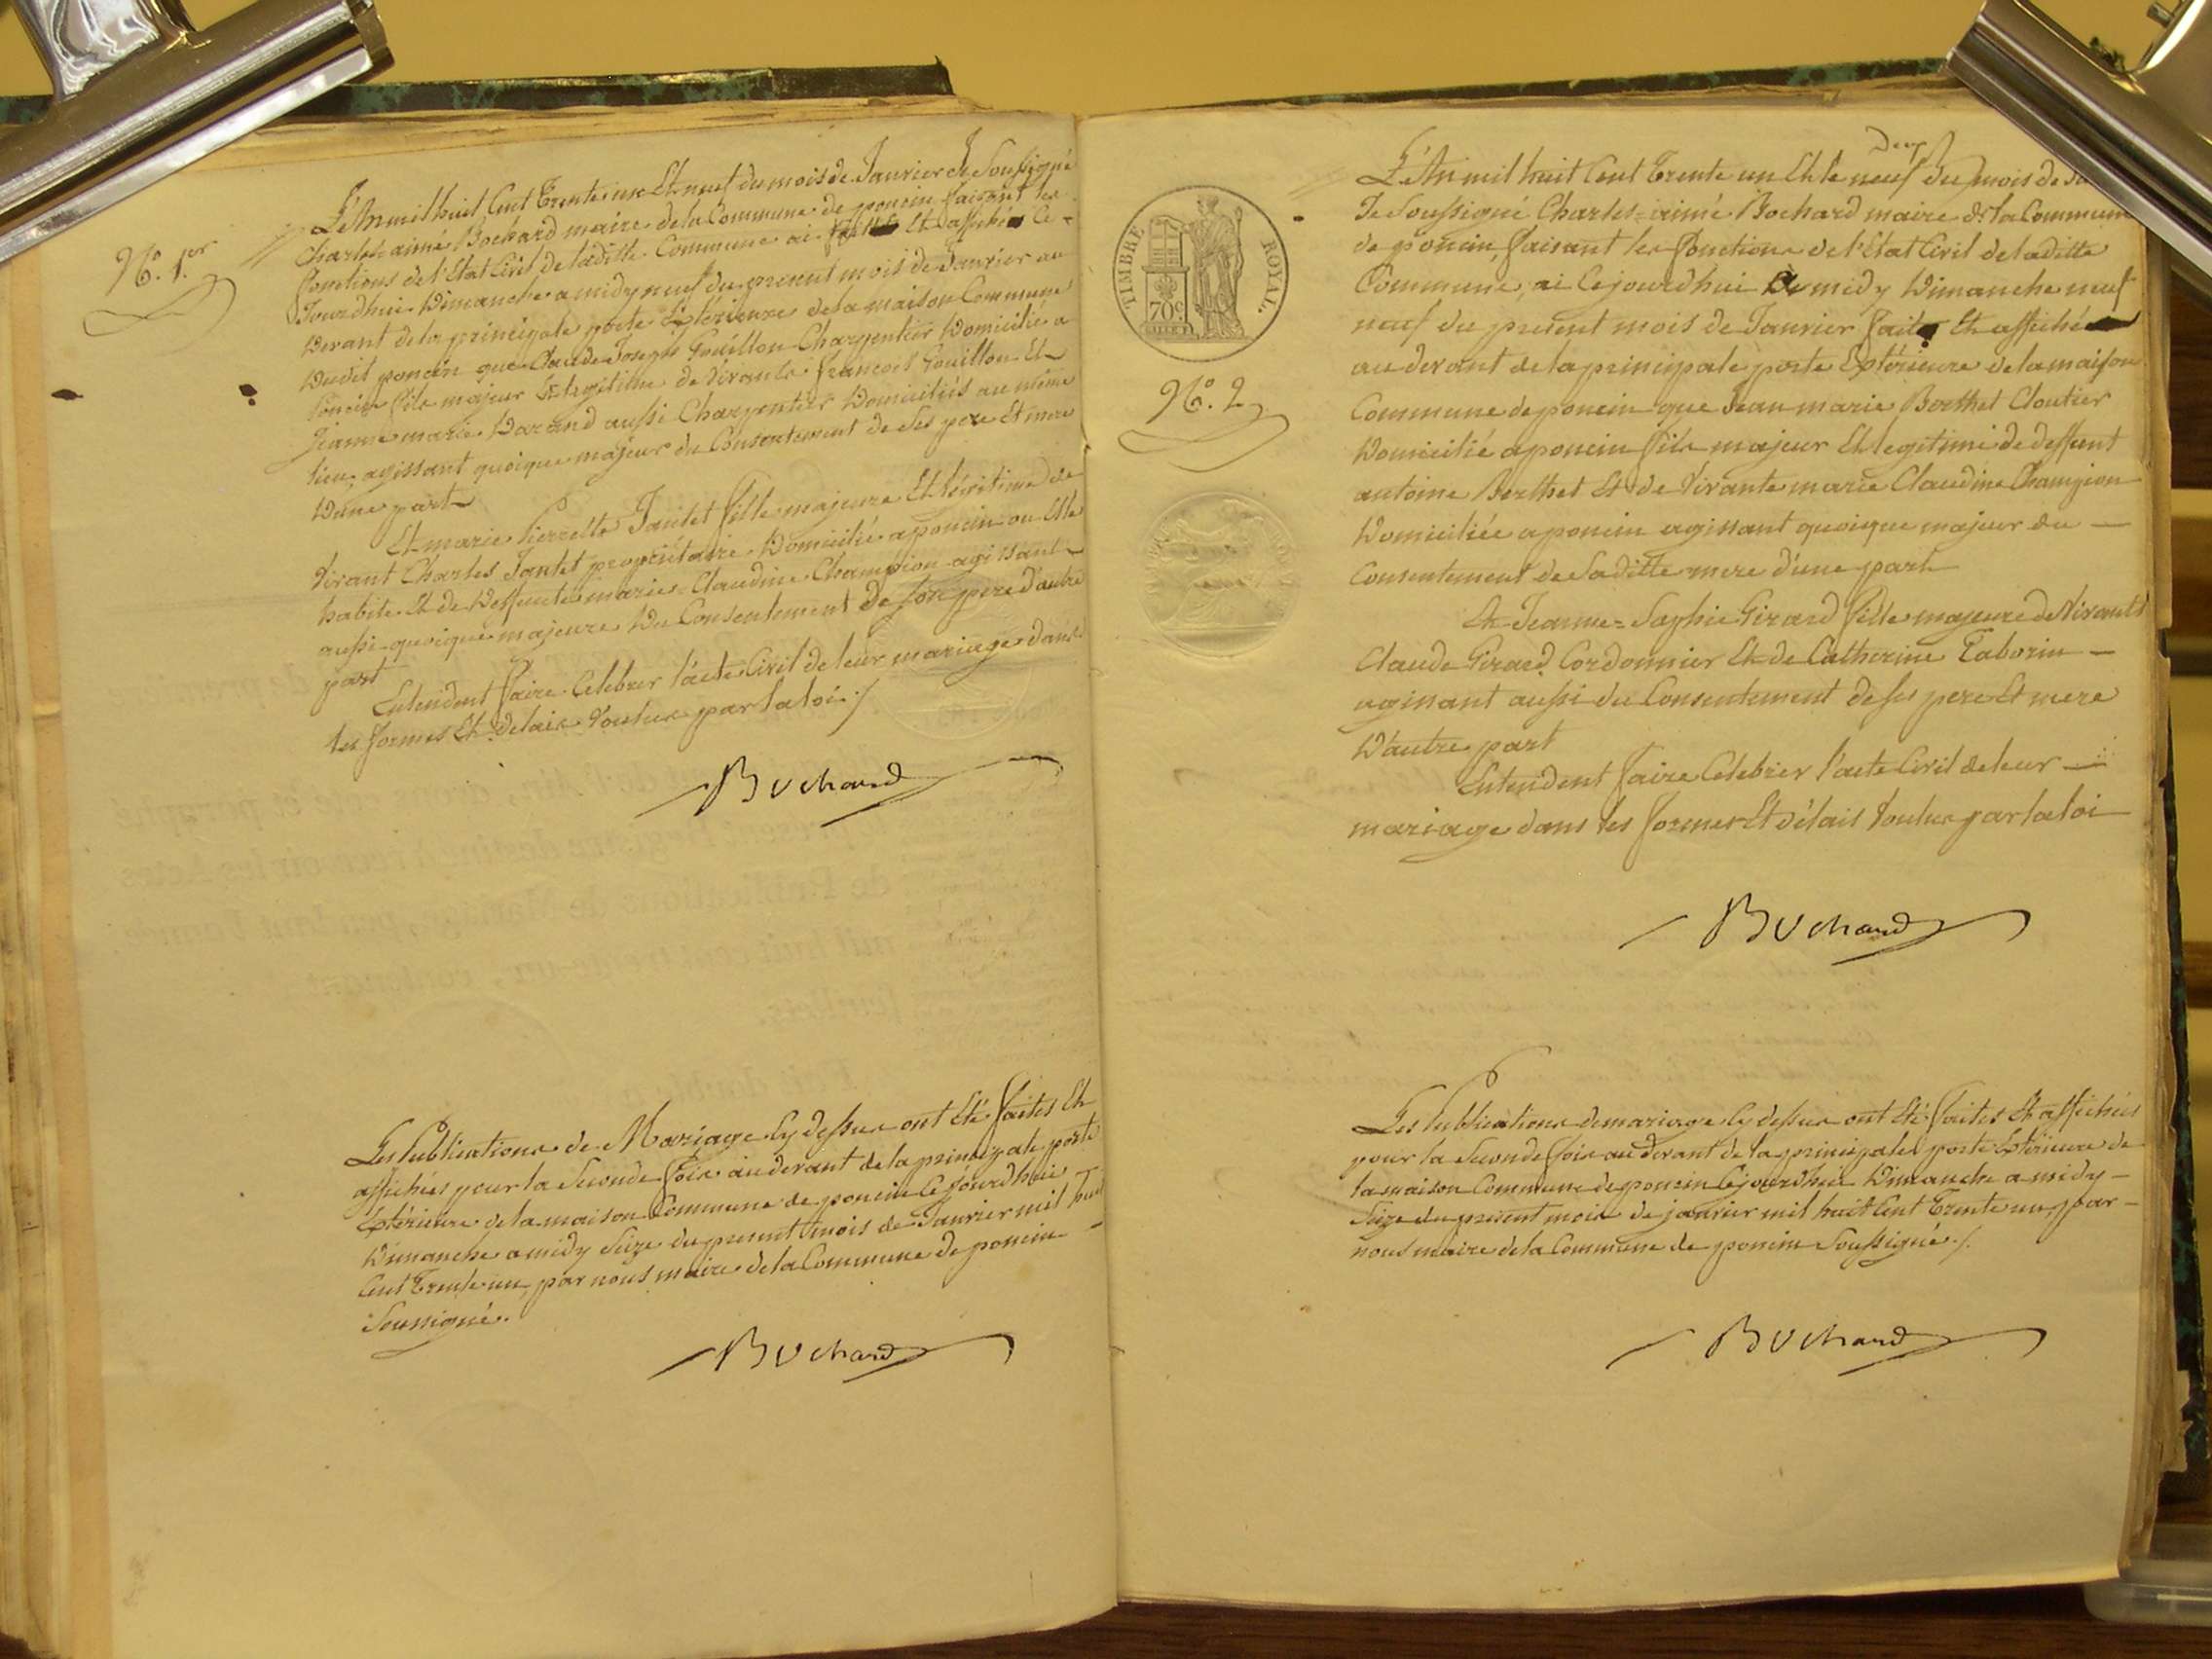 N.º 1.er
L'An mil huit Cent Trente un Et neuf du mois de Janvier Je Soussigné
Charles-aimé Bochard maire de la Commune de poncin faisant les
fonctions de l'Etat Civil de laditte Commune ai Et affiché Ce-
Jourdhui Dimanche a midy neuf du present mois de Janvier au
Devant de la principale porte Extérieure de la maison Commune
Dudit poncin que Claude Joseph Gouillon Charpentier Domicilié a
Poncin fils majeur Et legitime de vivants françois Gouillon Et
Jeanne marie Darand aussi Charpentier Domiciliés au même
lieu, agissant quoique majeur du Consentement de Ses pere Et mere
D'une part
Et marie Pierrette Jantet fille majeure Et légitime de
vivant Charles Jantet propriétaire Domicilié a poncin ou Elle
habite Et de Deffunte marie-Claudine Champion agissant
aussi quoique majeure Du Consentement De Son pere D'autre
part
Entendent faire Celebrer l'acte Civil de leur mariage dans
les formes Et Delais voulus par la loi ./
Bochard
Les Publications de Mariage Cy dessus ont Eté faites Et
affichées pour la Seconde fois au devant de la principale porte
Extérieure de la maison Commune de poncin Ce Jourdhui
Dimanche a midy Seize du present mois de Janvier mil huit
Cent Trente un, par nous maire de la Commune de poncin -
Soussigné.
Bochard
TIMBRE ROYAL.
70c.
N.º 2
L'An mil huit Cent Trente un Et le neuf du mois de
Je Soussigné Charles-aimé Bochard maire de la Commune
de poncin, faisant les fonctions de l'Etat Civil de laditte
Commune, ai Cejourdhui a midy Dimanche neuf
neuf du present mois de Janvier fait Et affiché
au devant de la principale porte Extérieure de la maison
Commune de poncin que Jean marie Berthet Cloutier
Domicilié a poncin fils majeur Et legitime de deffunt
antoine Berthet Et de vivante marie Claudine Champion
Domiciliée a poncin agissant quoique majeur du -
Consentement de Saditte mere d'une part
Et Jeanne-Sophie Girard fille majeure de Vivants
Claude Girard Cordonnier Et de Catherine Taborin -
agissant aussi du Consentement de ses pere Et mere
D'autre part
Entendent faire Celebrer l'acte Civil de leur -
mariage dans les formes Et délais voulus par la loi
Bochard
Les Publications de mariage Cy dessus ont Eté faites Et affichées
pour la Seconde fois au devant de la principale porte Extérieure de
la maison Commune de poncin Cejourdhui Dimanche a midy -
Seize du present mois de janvier mil huit Cent Trente un, par -
nous maire de la Commune de poncin Soussigné ./.
Bochard